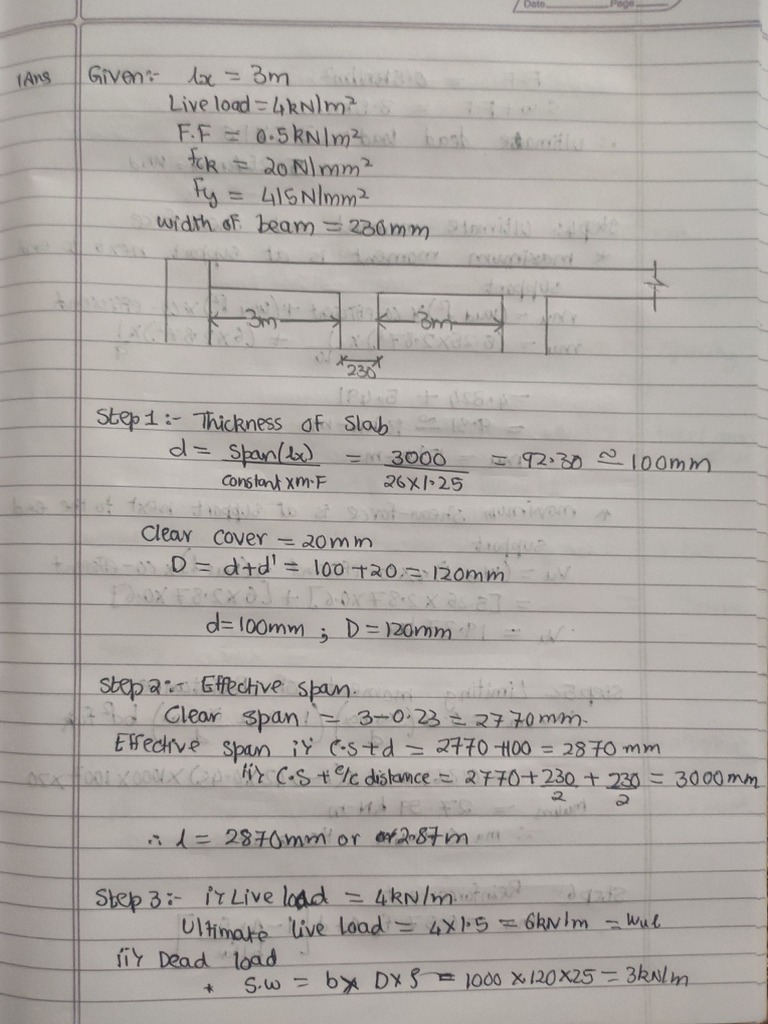 Date Page
1Ans Given:- lx = 3m
Live load = 4kN/m²
F.F = 0.5kN/m²
fck = 20N/mm²
Fy = 415N/mm²
width of beam = 230mm
3m 3m
230
Step 1:- Thickness of Slab
d = Span(lx) / constant x m.F = 3000 / 26 x 1.25 = 92.30 ≃ 100mm
Clear cover = 20mm
D = d+d' = 100+20 = 120mm
d=100mm ; D=120mm
Step 2:- Effective span.
Clear span = 3-0.23 = 2770mm.
Effective span i) C.S+d = 2770+100 = 2870mm
ii) C.S + c/c distance = 2770 + 230/2 + 230/2 = 3000mm
∴ l = 2870mm or 2.87m
Step 3:- i) Live load = 4kN/m.
Ultimate live load = 4x1.5 = 6kN/m = wul
ii) Dead load
* S.W = b x D x ρ = 1000 x .120 x 25 = 3kN/m